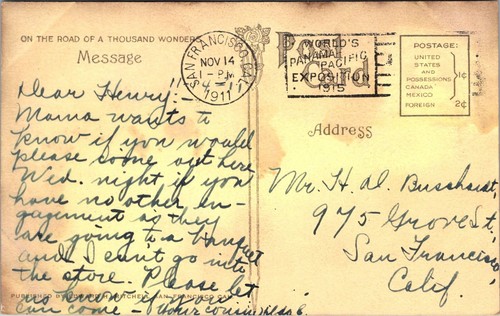 ON THE ROAD OF A THOUSAND WONDERS
Message
Dear Henry:-
Mama wants to
know if you would
please come out here
Wed. night if you
have no other en-
gagement as they
are going to a banquet
and I can't go into
the store. Please let
can come - Your cousin
SAN FRANCISCO, CAL.
NOV 14
1 - PM
1911
WORLD'S
PANAMA PACIFIC
EXPOSITION
1915
Post Card
POSTAGE:
UNITED
STATES AND
POSSESSIONS
CANADA
MEXICO
1¢
FOREIGN 2¢
Address
Mr. H. W.
975 Grove St.
San Francisco,
Calif.